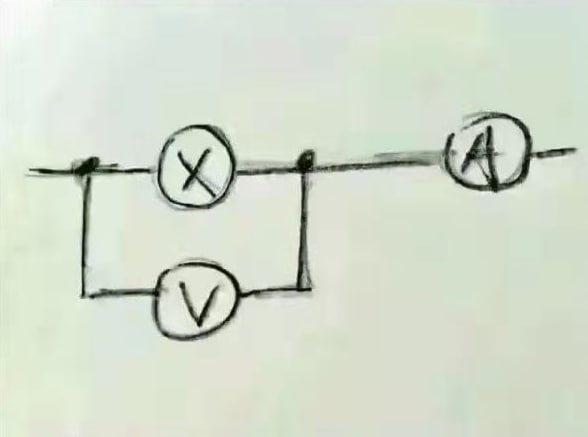 X A
V